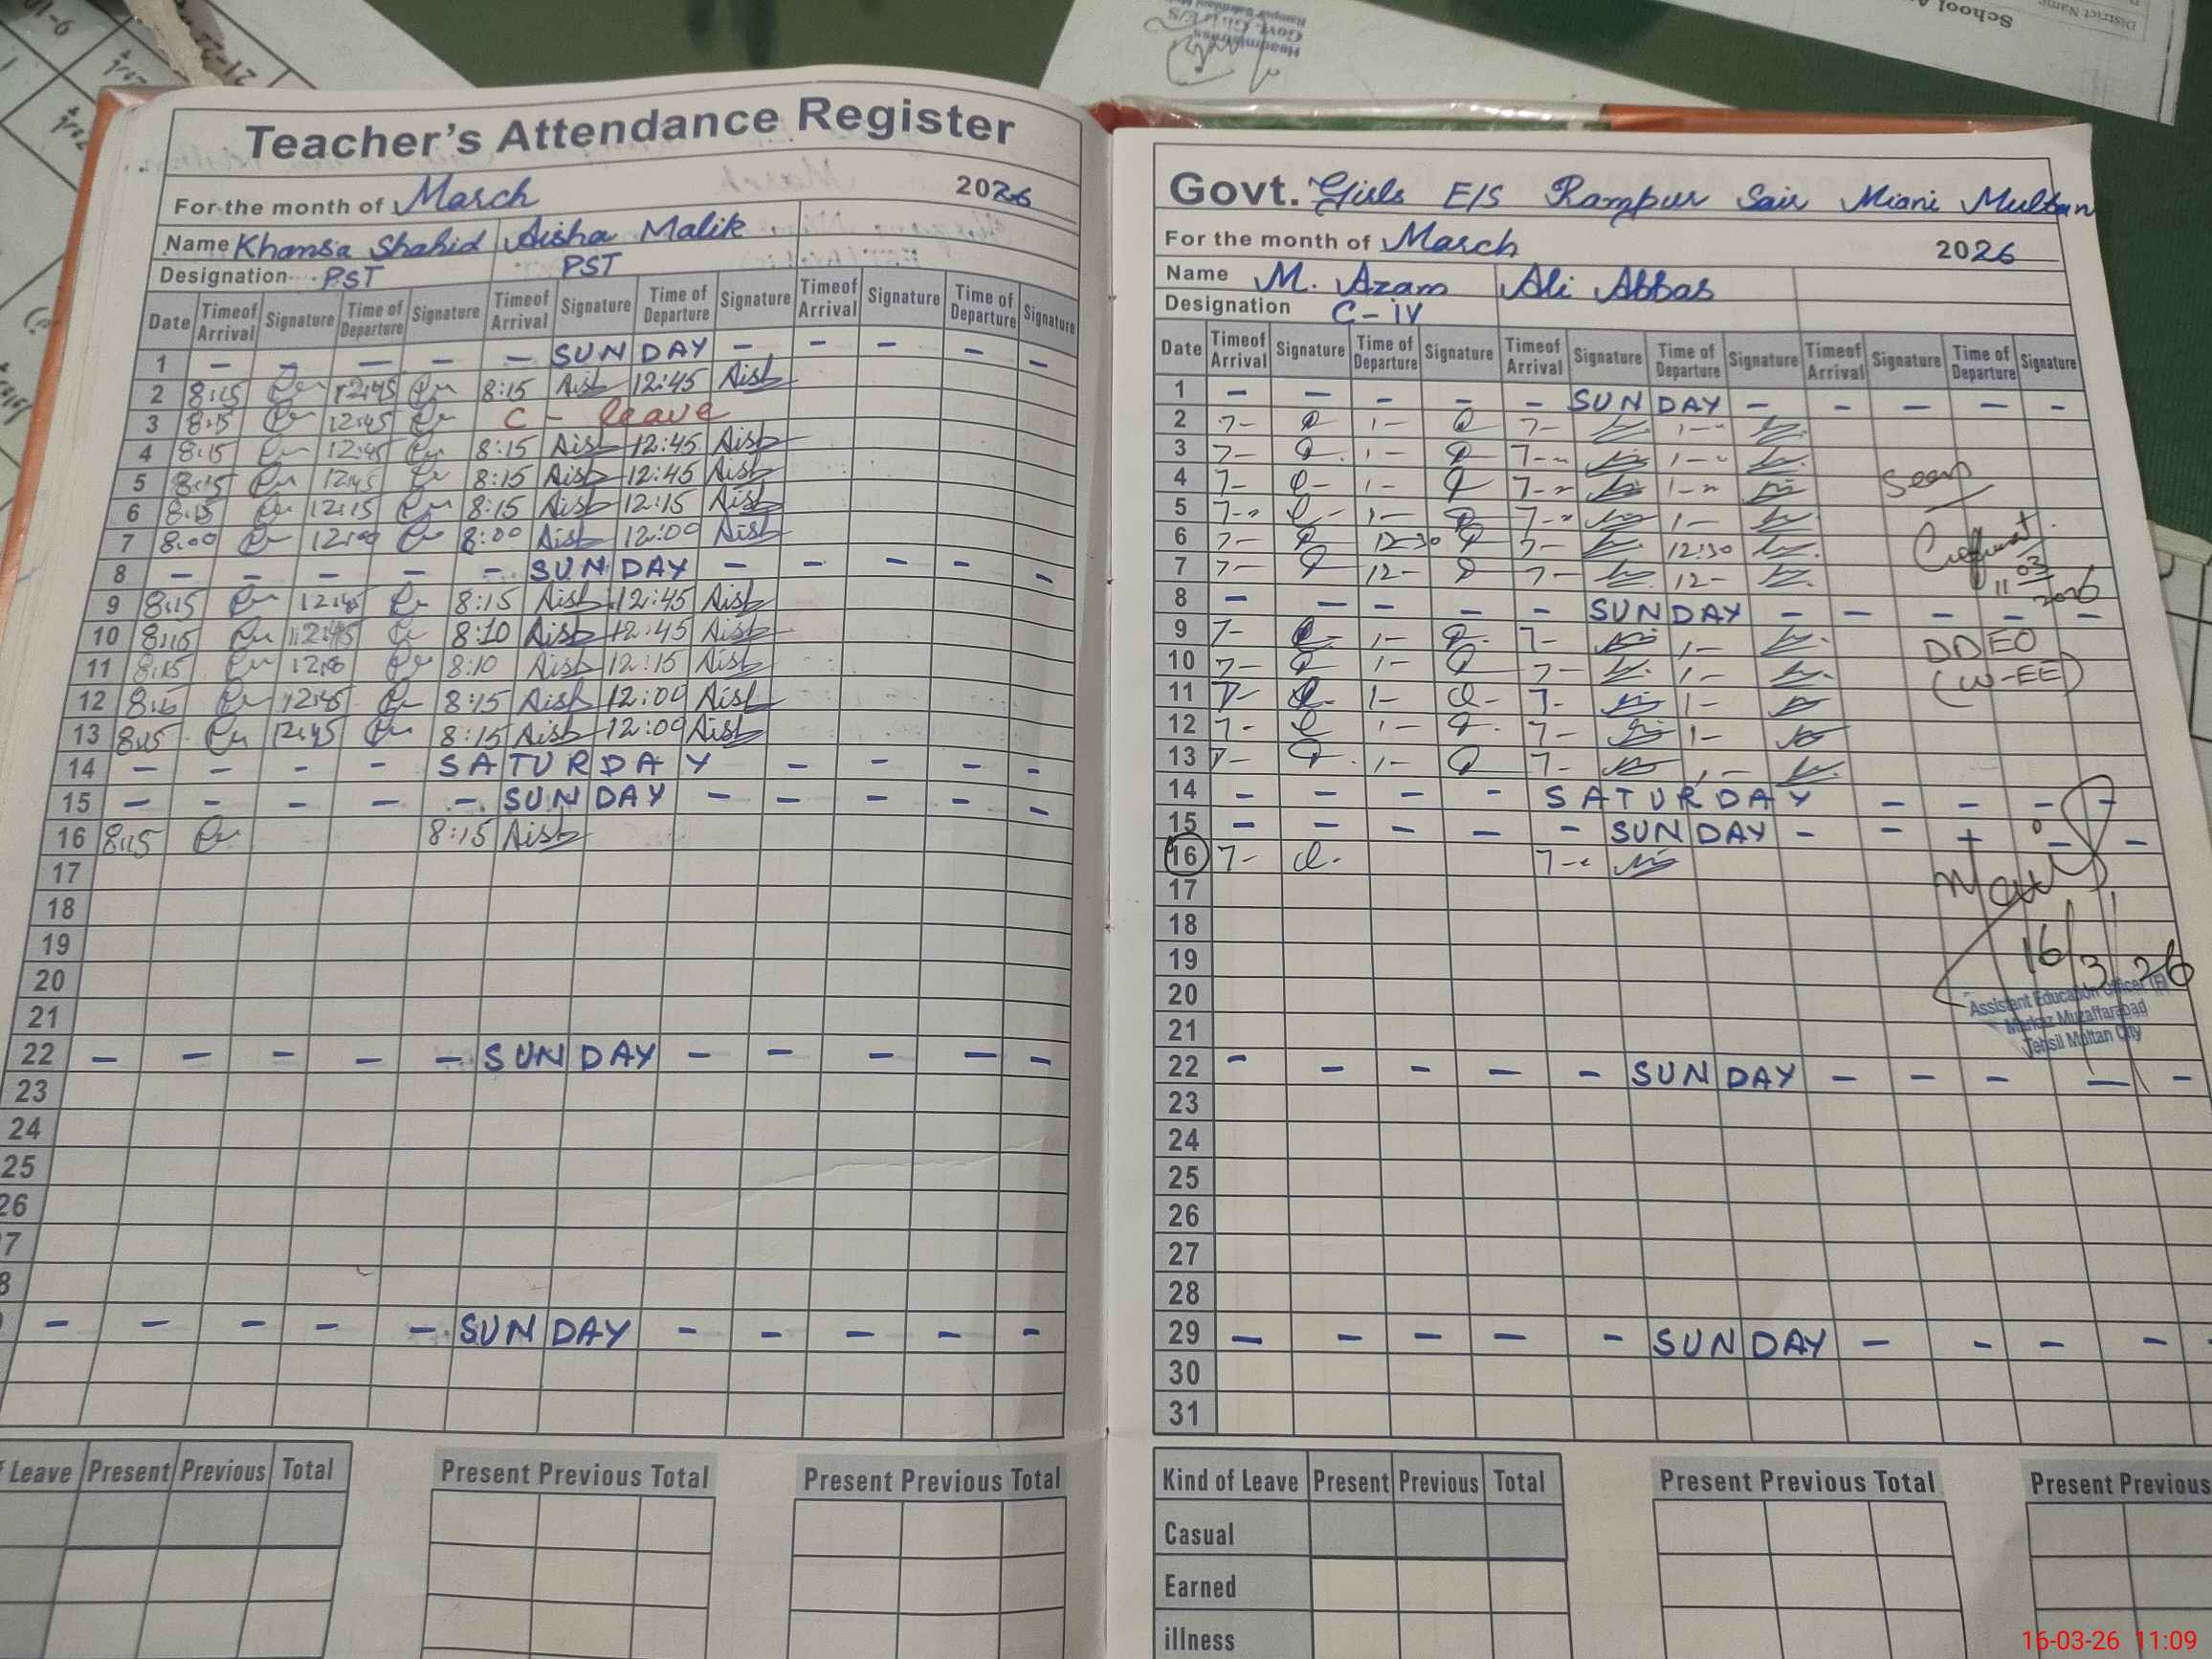 Teacher's Attendance Register
For the month of March 2026
Name Khamsa Shahid Aisha Malik
Designation PST PST
Date Timeof Arrival Signature Time of Departure Signature Timeof Arrival Signature Time of Departure Signature Timeof Arrival Signature Time of Departure Signature
1 - - - - - SUNDAY - - - - -
2 8:15 12:45 8:15 Aisb 12:45 Aisb
3 8:15 12:45 C - leave
4 8:15 12:45 8:15 Aisb 12:45 Aisb
5 8:15 12:45 8:15 Aisb 12:45 Aisb
6 8:15 12:15 8:15 Aisb 12:15 Aisb
7 8:00 12:00 8:00 Aisb 12:00 Aisb
8 - - - - - SUNDAY - - - - -
9 8:15 12:45 8:15 Aisb 12:45 Aisb
10 8:15 12:45 8:10 Aisb 12:45 Aisb
11 8:15 8:10 Aisb 12:15 Aisb
12 8:15 12:45 8:15 Aisb 12:00 Aisb
13 8:15 12:45 8:15 Aisb 12:00 Aisb
14 - - - - SATURDAY - - - -
15 - - - - - SUNDAY - - - - -
16 8:15 8:15 Aisb
17
18
19
20
21
22 - - - - - SUNDAY - - - - -
23
24
25
26
7
8
- - - - - SUNDAY - - - - -
Leave Present Previous Total
Present Previous Total
Present Previous Total
Govt. Girls E/S Rampur Sair Miani Multan
For the month of March 2026
Name M. Azam Ali Abbas
Designation C-iv
Date Timeof Arrival Signature Time of Departure Signature Timeof Arrival Signature Time of Departure Signature Timeof Arrival Signature Time of Departure Signature
1 - - - - - SUNDAY - - - - -
2 7- 1- 7- 1-
3 7- 1- 7- 1-
4 7- 1- 7- 1- Seen
5 7- 1- 7- 1-
6 7- 12:30 7- 12:30
7 7- 12- 7- 12- 11/03/2026
8 - - - - - SUNDAY - - - - -
9 7- 1- 7- 1- DDEO
10 7- 1- 7- 1- (W-EE)
11 7- 1- 7- 1-
12 7- 1- 7- 1-
13 7- 1- 7- 1-
14 - - - - SATURDAY - - - -
15 - - - - - SUNDAY - - - - -
16 7- 7-
17
18
19 16/3/26
20 Assistant Education Officer (F)
Markaz Muzaffarabad
21 Tehsil Multan City
22 - - - - - SUNDAY - - - - -
23
24
25
26
27
28
29 - - - - - SUNDAY - - - -
30
31
Kind of Leave Present Previous Total
Casual
Earned
illness
Present Previous Total
Present Previous
Headmistress
Govt. Girls E/S
School
District Name
16-03-26 11:09